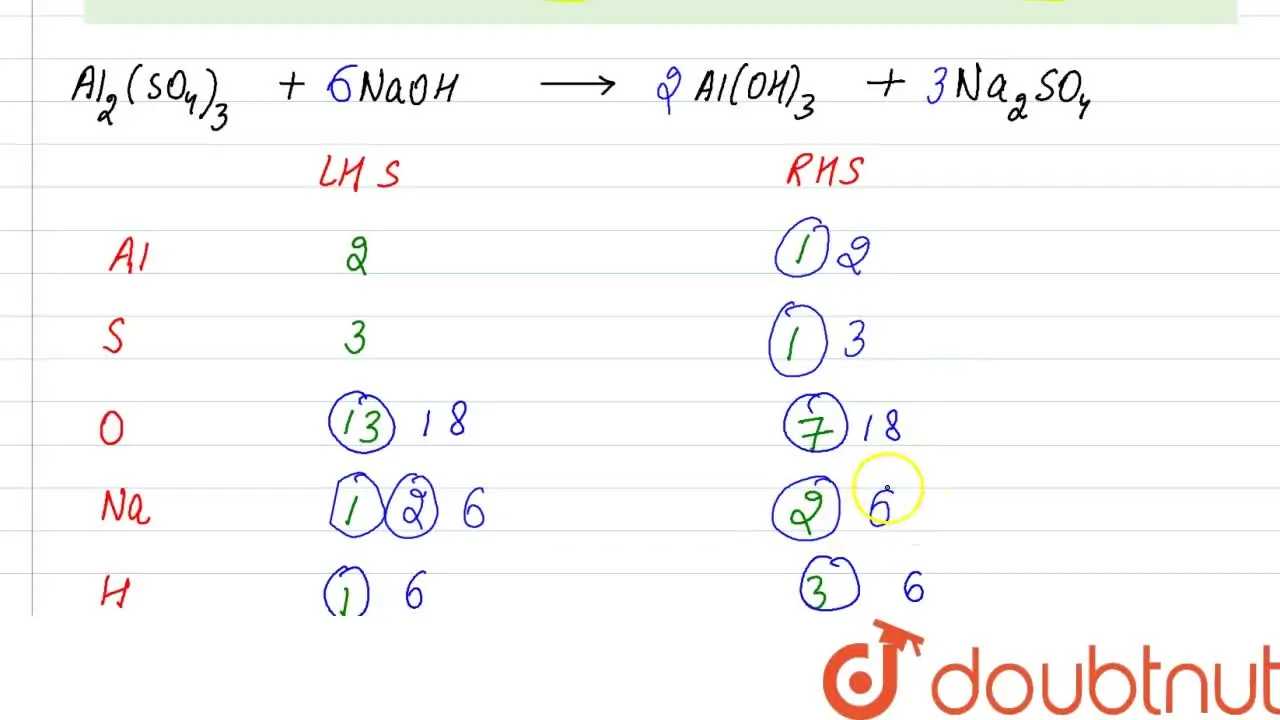 Al₂(SO₄)₃ + 6NaOH ⟶ 2Al(OH)₃ + 3Na₂SO₄
LHS RHS
Al 2 1 2
S 3 1 3
O 13 18 7 18
Na 1 2 6 2 6
H 1 6 3 6
doubtnut